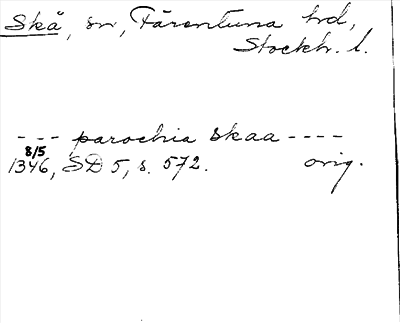 Skå, sn, Färentuna hrd,
Stockh. l.
- - - parochia skaa - - - -
8/5
1346, SD 5, s. 572. orig.